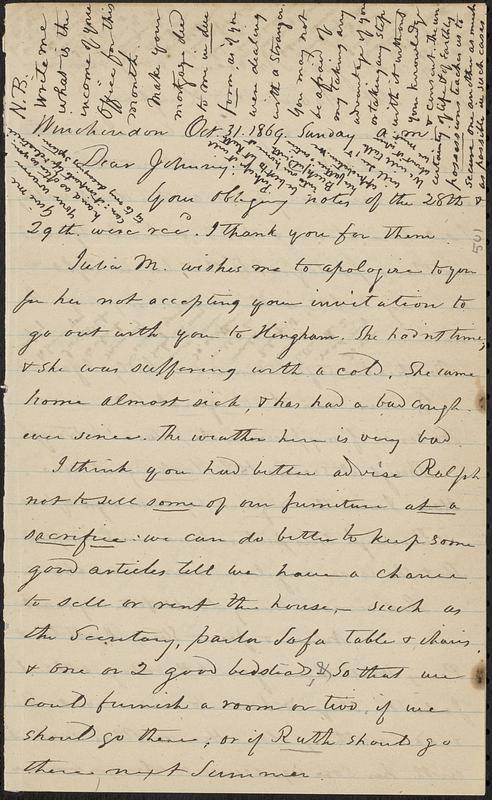 N.B.
Write me
what is the
income of your
Office for this
month.
Make your
mortgage deed
to me in due
form as if you
were dealing
with a Stranger
You may not
be afraid of
my taking any
advantage of you
or taking any step
with it without
your knowledge
& consent. The un
certainty of life & of Earthly
possessions teaches us to
secure one another as much
as possible in such cases
Winchendon Oct. 31. 1869. Sunday a.m.
Dear Johnny:
Your obliging notes of the 28th &
29th were recd. I thank you for them.
501
Julia M. wishes me to apologize to you
for her not accepting your invitation to
go out with you to Hingham. She hadnt time,
& she was suffering with a cold. She came
home almost sick, & has had a bad cough
ever since. The weather here is very bad.
I think you had better advise Ralph
not to sell some of our furniture at a
sacrifice: we can do better to keep some
good articles till we have a chance
to sell or rent the house, – such as
the Secretary, parlor Sofa table & chairs,
& one or 2 good bedsteads, & So that we
could furnish a room or two, if we
should go there; or if Ruth should go
there, next Summer.